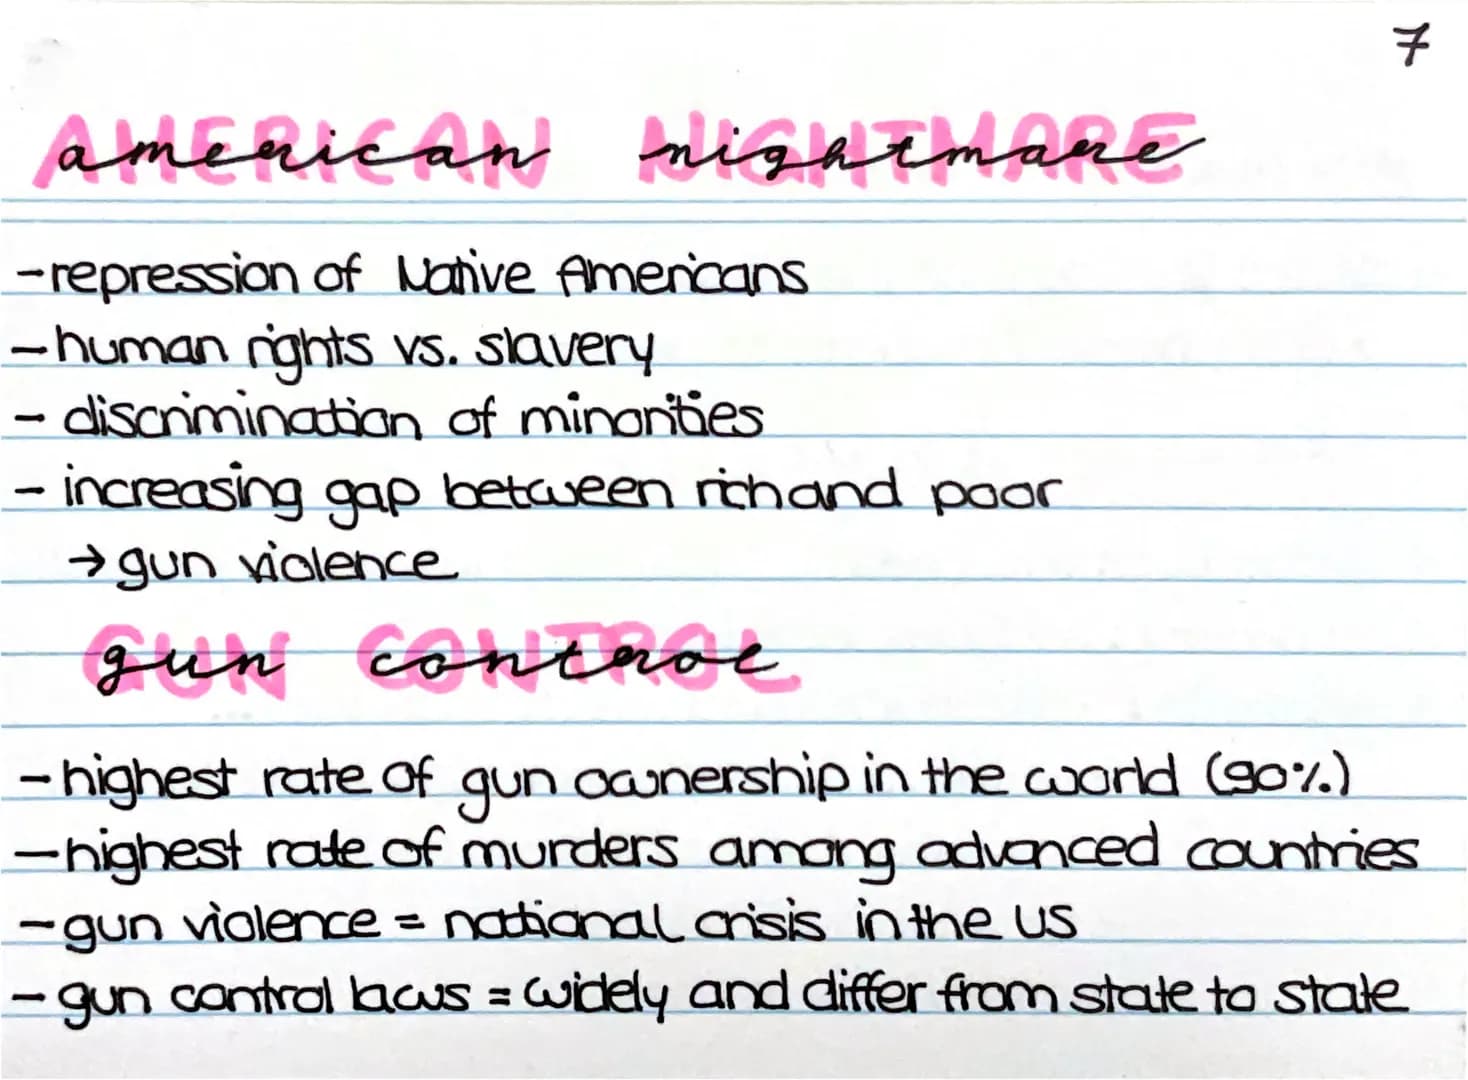 7
AMERICAN NIGHTMARE
american nightmare
-repression of Native Americans
-human rights vs. slavery
- discrimination of minorities
- increasing gap between rich and poor
→ gun violence
GUN CONTROL
gun control
-highest rate of gun ownership in the world (90%)
-highest rate of murders among advanced countries
-gun violence = national crisis in the US
-gun control laws = widely and differ from state to state